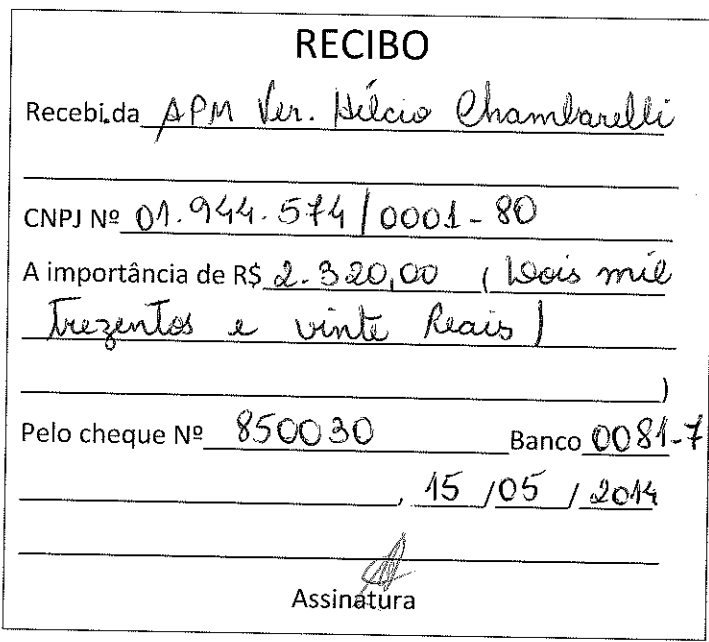 RECIBO
Recebi.da APM Ver. Hélcio Chambarelli
CNPJ Nº 01.944.574/0001-80
A importância de R$ 2.320,00 (Dois mil
Trezentos e vinte Reais)
)
Pelo cheque Nº 850030 Banco 0081-7
, 15 /05 / 2014
Assinatura